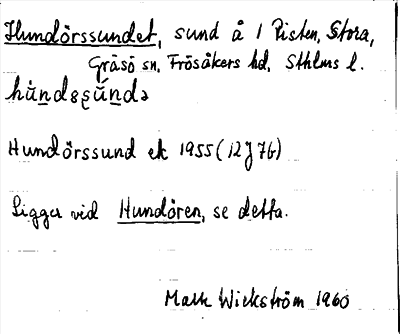 Hundörssundet, sund å 1 Risten, Stora,
Gräsö sn, Frösåkers hd, Sthlms l.
hùndsʂúndə
Hundörssund ek 1955 (12J7G)
Ligger vid Hundören, se detta.
Wickström 1960